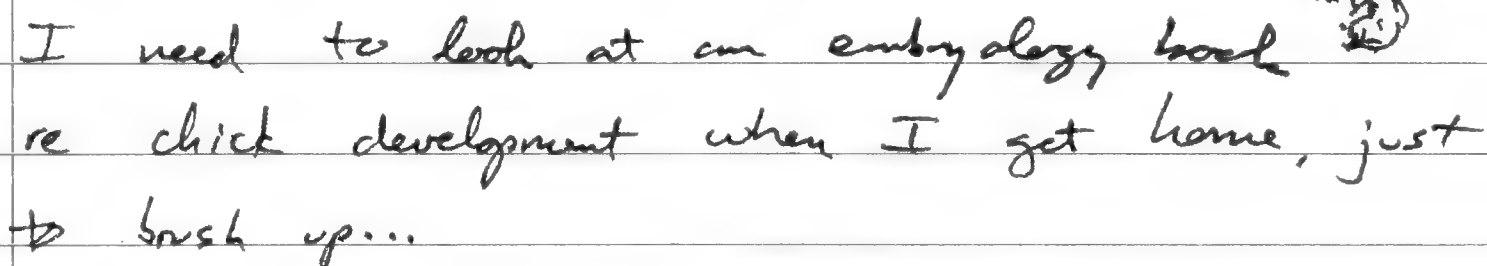 I need to look at an embryology book
re chick development when I get home, just
to brush up...